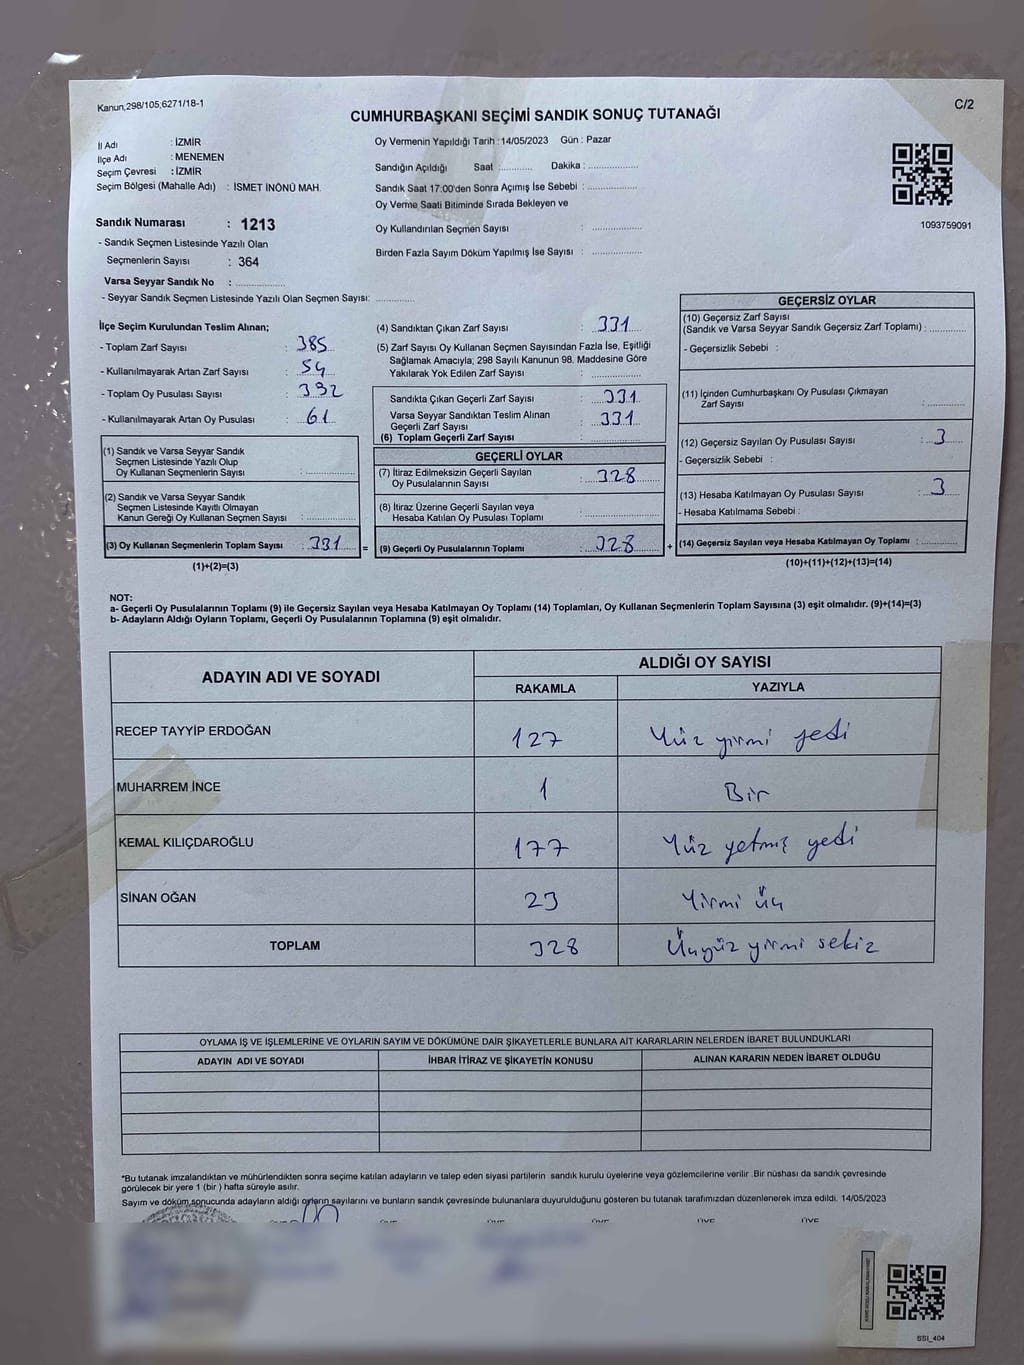 Kanun;298/105;6271/18-1
C/2
CUMHURBAŞKANI SEÇİMİ SANDIK SONUÇ TUTANAĞI
İl Adı : İZMİR
İlçe Adı : MENEMEN
Seçim Çevresi : İZMİR
Seçim Bölgesi (Mahalle Adı) : İSMET İNÖNÜ MAH.
Sandık Numarası : 1213
- Sandık Seçmen Listesinde Yazılı Olan
Seçmenlerin Sayısı : 364
Varsa Seyyar Sandık No : ................
- Seyyar Sandık Seçmen Listesinde Yazılı Olan Seçmen Sayısı: .............
Oy Vermenin Yapıldığı Tarih : 14/05/2023 Gün : Pazar
Sandığın Açıldığı Saat ............ Dakika : ................
Sandık Saat 17:00'den Sonra Açımış İse Sebebi : ................
Oy Verme Saati Bitiminde Sırada Bekleyen ve
Oy Kullandırılan Seçmen Sayısı : ................
Birden Fazla Sayım Döküm Yapılmış İse Sayısı : ................
1093759091
İlçe Seçim Kurulundan Teslim Alınan;
- Toplam Zarf Sayısı : 385
- Kullanılmayarak Artan Zarf Sayısı : 54
- Toplam Oy Pusulası Sayısı : 392
- Kullanılmayarak Artan Oy Pusulası : 61
(1) Sandık ve Varsa Seyyar Sandık
Seçmen Listesinde Yazılı Olup
Oy Kullanan Seçmenlerin Sayısı : ................
(2) Sandık ve Varsa Seyyar Sandık
Seçmen Listesinde Kayıtlı Olmayan
Kanun Gereği Oy Kullanan Seçmen Sayısı : ................
(3) Oy Kullanan Seçmenlerin Toplam Sayısı : 331 =
(1)+(2)=(3)
(4) Sandıktan Çıkan Zarf Sayısı : 331
(5) Zarf Sayısı Oy Kullanan Seçmen Sayısından Fazla İse, Eşitliği
Sağlamak Amacıyla; 298 Sayılı Kanunun 98. Maddesine Göre
Yakılarak Yok Edilen Zarf Sayısı : ................
Sandıkta Çıkan Geçerli Zarf Sayısı : 331
Varsa Seyyar Sandıktan Teslim Alınan
Geçerli Zarf Sayısı : 331
(6) Toplam Geçerli Zarf Sayısı : ................
GEÇERLİ OYLAR
(7) İtiraz Edilmeksizin Geçerli Sayılan
Oy Pusulalarının Sayısı : 328
(8) İtiraz Üzerine Geçerli Sayılan veya
Hesaba Katılan Oy Pusulası Toplamı : ................
(9) Geçerli Oy Pusulalarının Toplamı : 328 +
GEÇERSİZ OYLAR
(10) Geçersiz Zarf Sayısı
(Sandık ve Varsa Seyyar Sandık Geçersiz Zarf Toplamı) : ............
- Geçersizlik Sebebi :
(11) İçinden Cumhurbaşkanı Oy Pusulası Çıkmayan
Zarf Sayısı : ............
(12) Geçersiz Sayılan Oy Pusulası Sayısı : 3
- Geçersizlik Sebebi :
(13) Hesaba Katılmayan Oy Pusulası Sayısı : 3
- Hesaba Katılmama Sebebi :
(14) Geçersiz Sayılan veya Hesaba Katılmayan Oy Toplamı : ............
(10)+(11)+(12)+(13)=(14)
NOT:
a- Geçerli Oy Pusulalarının Toplamı (9) ile Geçersiz Sayılan veya Hesaba Katılmayan Oy Toplamı (14) Toplamları, Oy Kullanan Seçmenlerin Toplam Sayısına (3) eşit olmalıdır. (9)+(14)=(3)
b- Adayların Aldığı Oyların Toplamı, Geçerli Oy Pusulalarının Toplamına (9) eşit olmalıdır.
ADAYIN ADI VE SOYADI ALDIĞI OY SAYISI
RAKAMLA YAZIYLA
RECEP TAYYİP ERDOĞAN 127 Yüz yirmi yedi
MUHARREM İNCE 1 Bir
KEMAL KILIÇDAROĞLU 177 Yüz yetmiş yedi
SİNAN OĞAN 23 Yirmi üç
TOPLAM 328 Üçyüz yirmi sekiz
OYLAMA İŞ VE İŞLEMLERİNE VE OYLARIN SAYIM VE DÖKÜMÜNE DAİR ŞİKAYETLERLE BUNLARA AİT KARARLARIN NELERDEN İBARET BULUNDUKLARI
ADAYIN ADI VE SOYADI İHBAR İTİRAZ VE ŞİKAYETİN KONUSU ALINAN KARARIN NEDEN İBARET OLDUĞU
*Bu tutanak imzalandıktan ve mühürlendikten sonra seçime katılan adayların ve talep eden siyasi partilerin sandık kurulu üyelerine veya gözlemcilerine verilir .Bir nüshası da sandık çevresinde
görülecek bir yere 1 (bir ) hafta süreyle asılır.
Sayım ve döküm sonucunda adayların aldığı oyların sayılarını ve bunların sandık çevresinde bulunanlara duyurulduğunu gösteren bu tutanak tarafımızdan düzenlenerek imza edildi. 14/05/2023
ÜYE ÜYE ÜYE ÜYE ÜYE
SSI_404